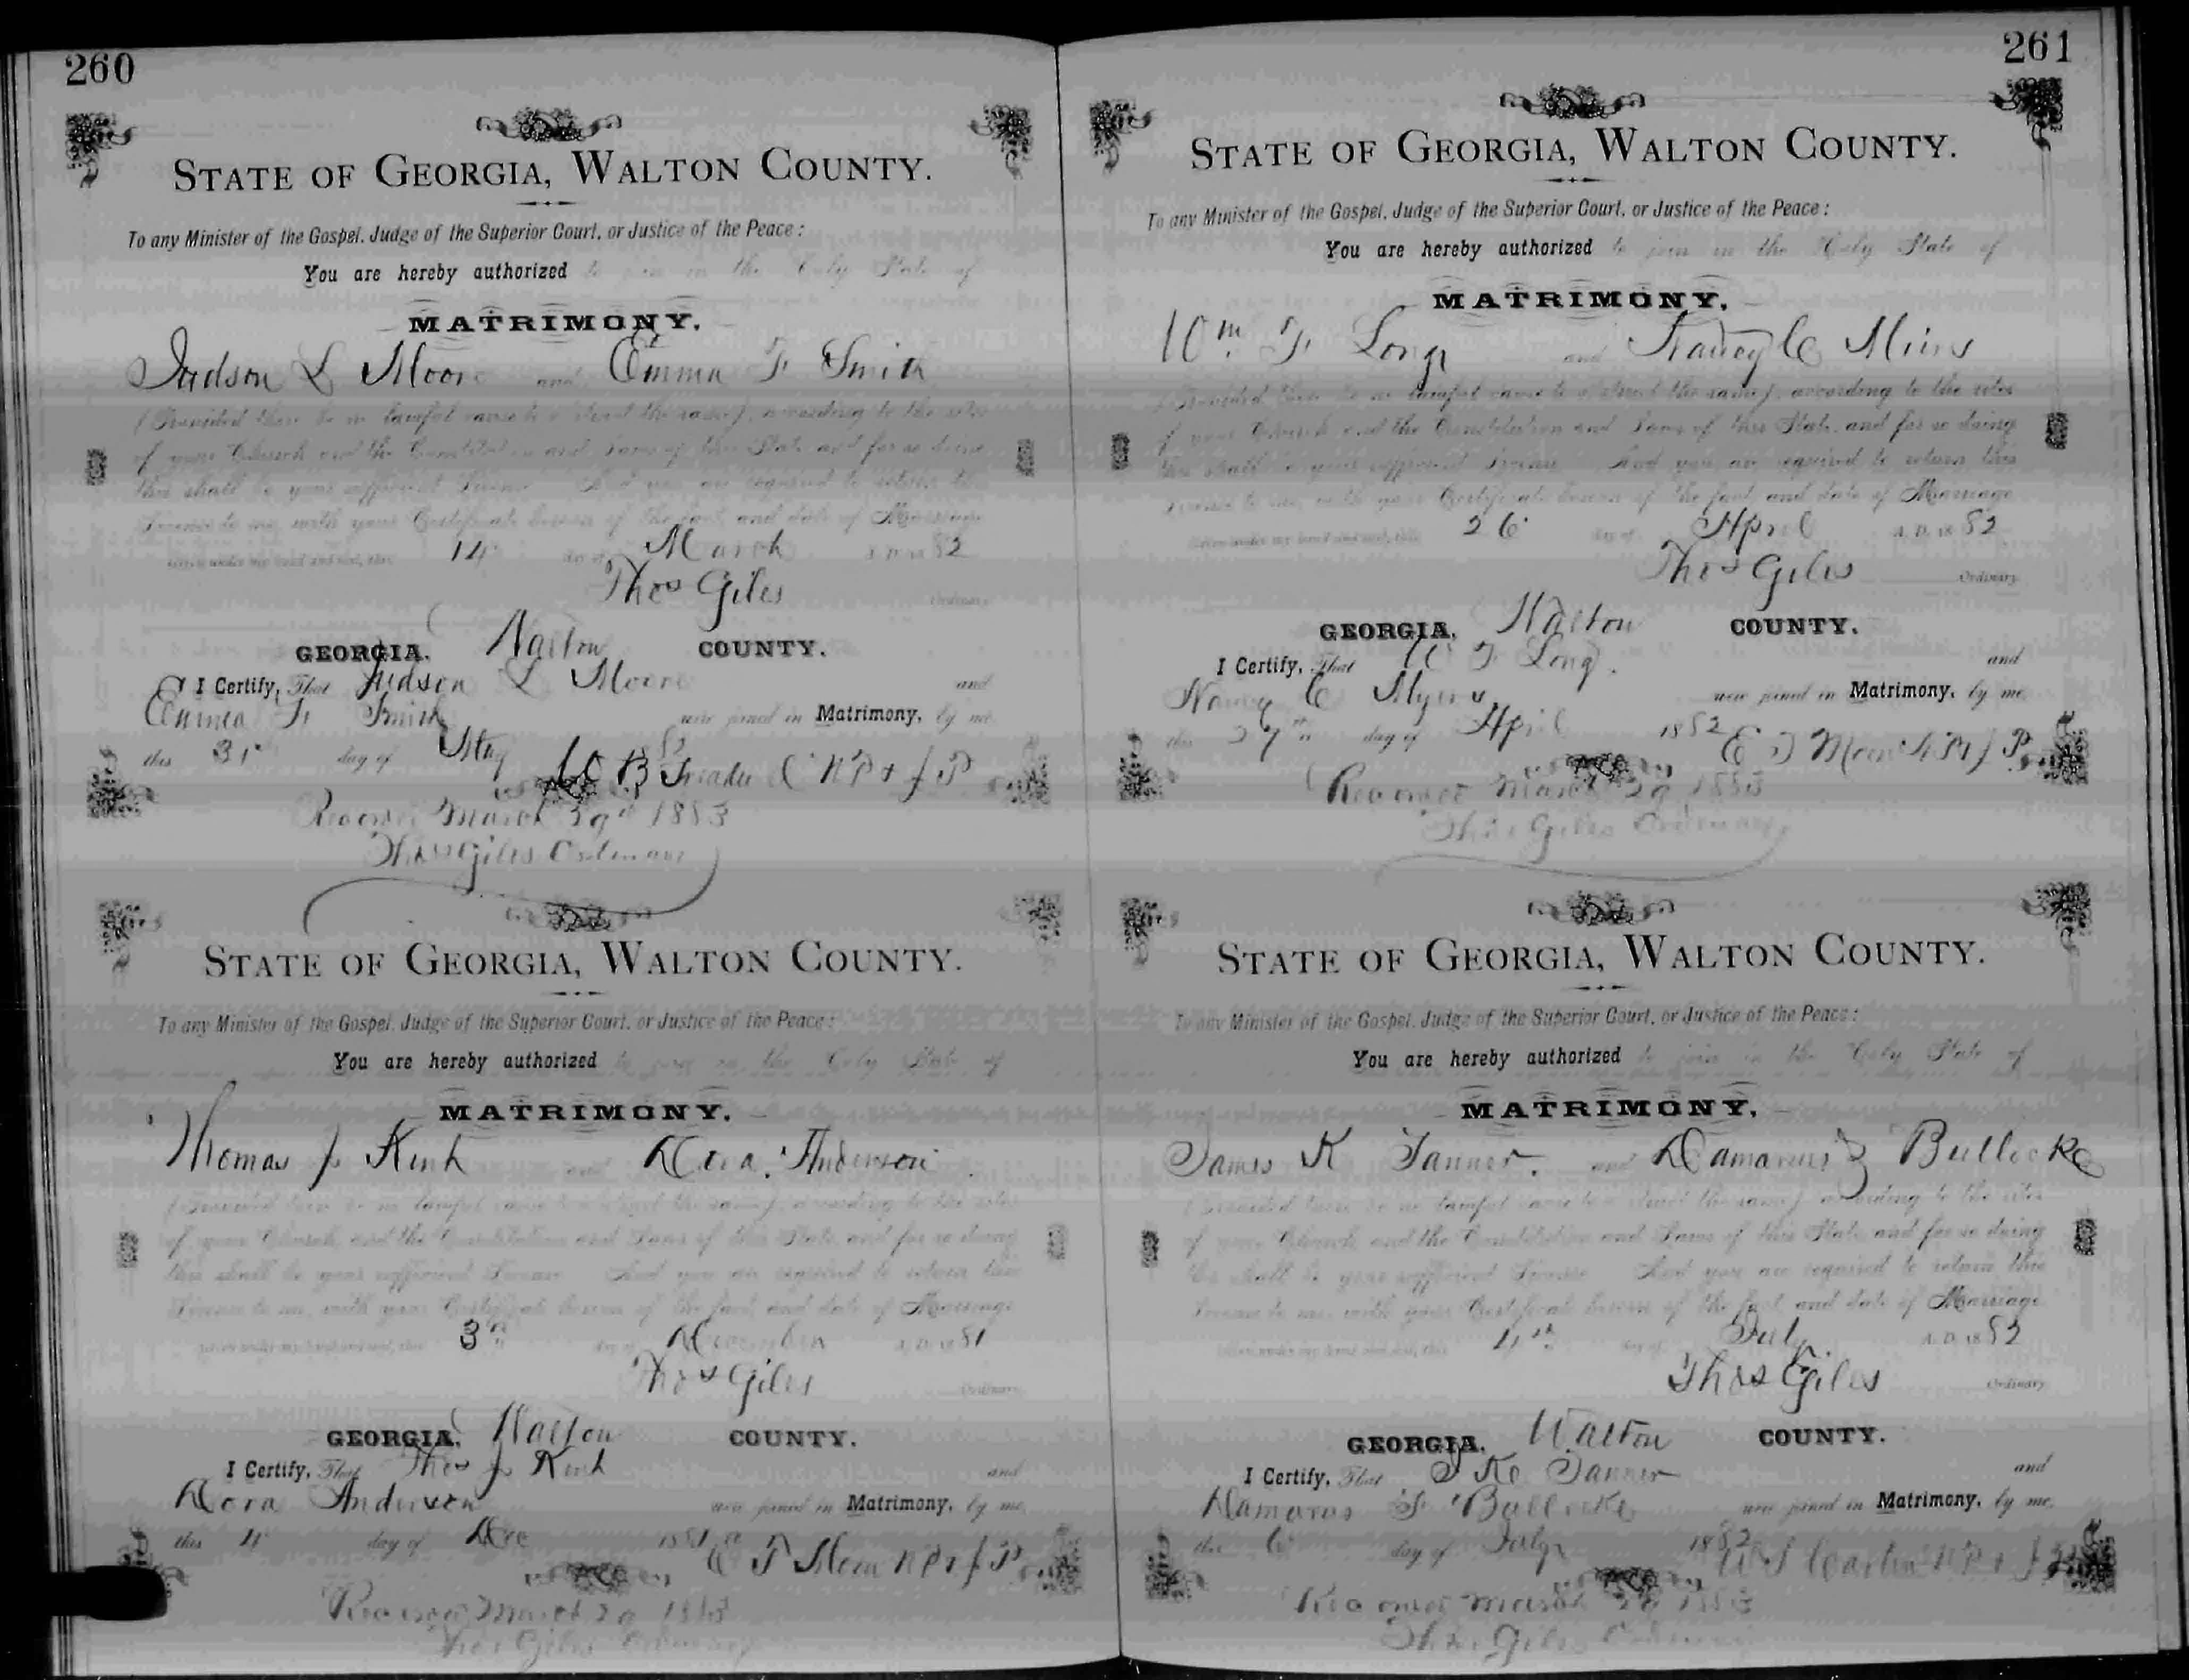 260
STATE OF GEORGIA, WALTON COUNTY.
To any Minister of the Gospel, Judge of the Superior Court, or Justice of the Peace:
You are hereby authorized to join in the Holy State of
MATRIMONY,
Judson L Moore and Emma F Smith
(Provided there be no lawful cause to obstruct the same), according to the rites
of your Church and the Constitution and Laws of this State and for so doing
this shall be your sufficient License And you are required to return this
License to me, with your Certificate hereon of the fact and date of Marriage
Given under my hand and seal, this 14 day of March A. D. 1882
Thos Giles Ordinary
GEORGIA, Walton COUNTY.
I Certify, That Judson L Moore and
Emma F Smith were joined in Matrimony, by me
this 31st day of May 82
W B NP & J P
Recorded March 29th 1883
Thos Giles Ordinary
STATE OF GEORGIA, WALTON COUNTY.
To any Minister of the Gospel, Judge of the Superior Court, or Justice of the Peace:
You are hereby authorized to join in the Holy State of
MATRIMONY,
Thomas J and Dora Anderson
(Provided there be no lawful cause to obstruct the same), according to the rites
of your Church and the Constitution and Laws of this State and for so doing
this shall be your sufficient License And you are required to return this
License to me, with your Certificate hereon of the fact and date of Marriage
Given under my hand and seal, this 3rd day of December A. D. 1881
Thos Giles Ordinary
GEORGIA, Walton COUNTY.
I Certify, That Thos J and
Dora Anderson were joined in Matrimony, by me
this 4 day of Dec 1881
NP & J P
Recorded March 29 1883
Thos Giles Ordinary
261
STATE OF GEORGIA, WALTON COUNTY.
To any Minister of the Gospel, Judge of the Superior Court, or Justice of the Peace:
You are hereby authorized to join in the Holy State of
MATRIMONY,
Wm F Long and Nancy C Mires
(Provided there be no lawful cause to obstruct the same), according to the rites
of your Church and the Constitution and Laws of this State and for so doing
this shall be your sufficient License And you are required to return this
License to me, with your Certificate hereon of the fact and date of Marriage
Given under my hand and seal, this 26 day of April A. D. 1882
Thos Giles Ordinary
GEORGIA, Walton COUNTY.
I Certify, That W F Long and
Nancy C Myers were joined in Matrimony, by me
this 27th day of April 1882
J P
Recorded March 29 1883
Thos Giles Ordinary
STATE OF GEORGIA, WALTON COUNTY.
To any Minister of the Gospel, Judge of the Superior Court, or Justice of the Peace:
You are hereby authorized to join in the Holy State of
MATRIMONY,
James K Tanner and Bullocke
(Provided there be no lawful cause to obstruct the same), according to the rites
of your Church and the Constitution and Laws of this State and for so doing
this shall be your sufficient License And you are required to return this
License to me, with your Certificate hereon of the fact and date of Marriage
Given under my hand and seal, this 4th day of July A. D. 1882
Thos Giles Ordinary
GEORGIA, Walton COUNTY.
I Certify, That J K Tanner and
Damarus Bullocke were joined in Matrimony, by me
this 6 day of July 1882
NP & J P
Recorded March 29 1883
Thos Giles Ordinary